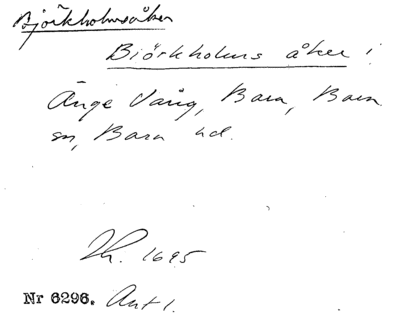 Björkholmsåker
Biörkholms åker i
Änge Vång, Bara, Bara
sn, Bara hd.
Lh. 1695
Nr 6296. Ant 1.